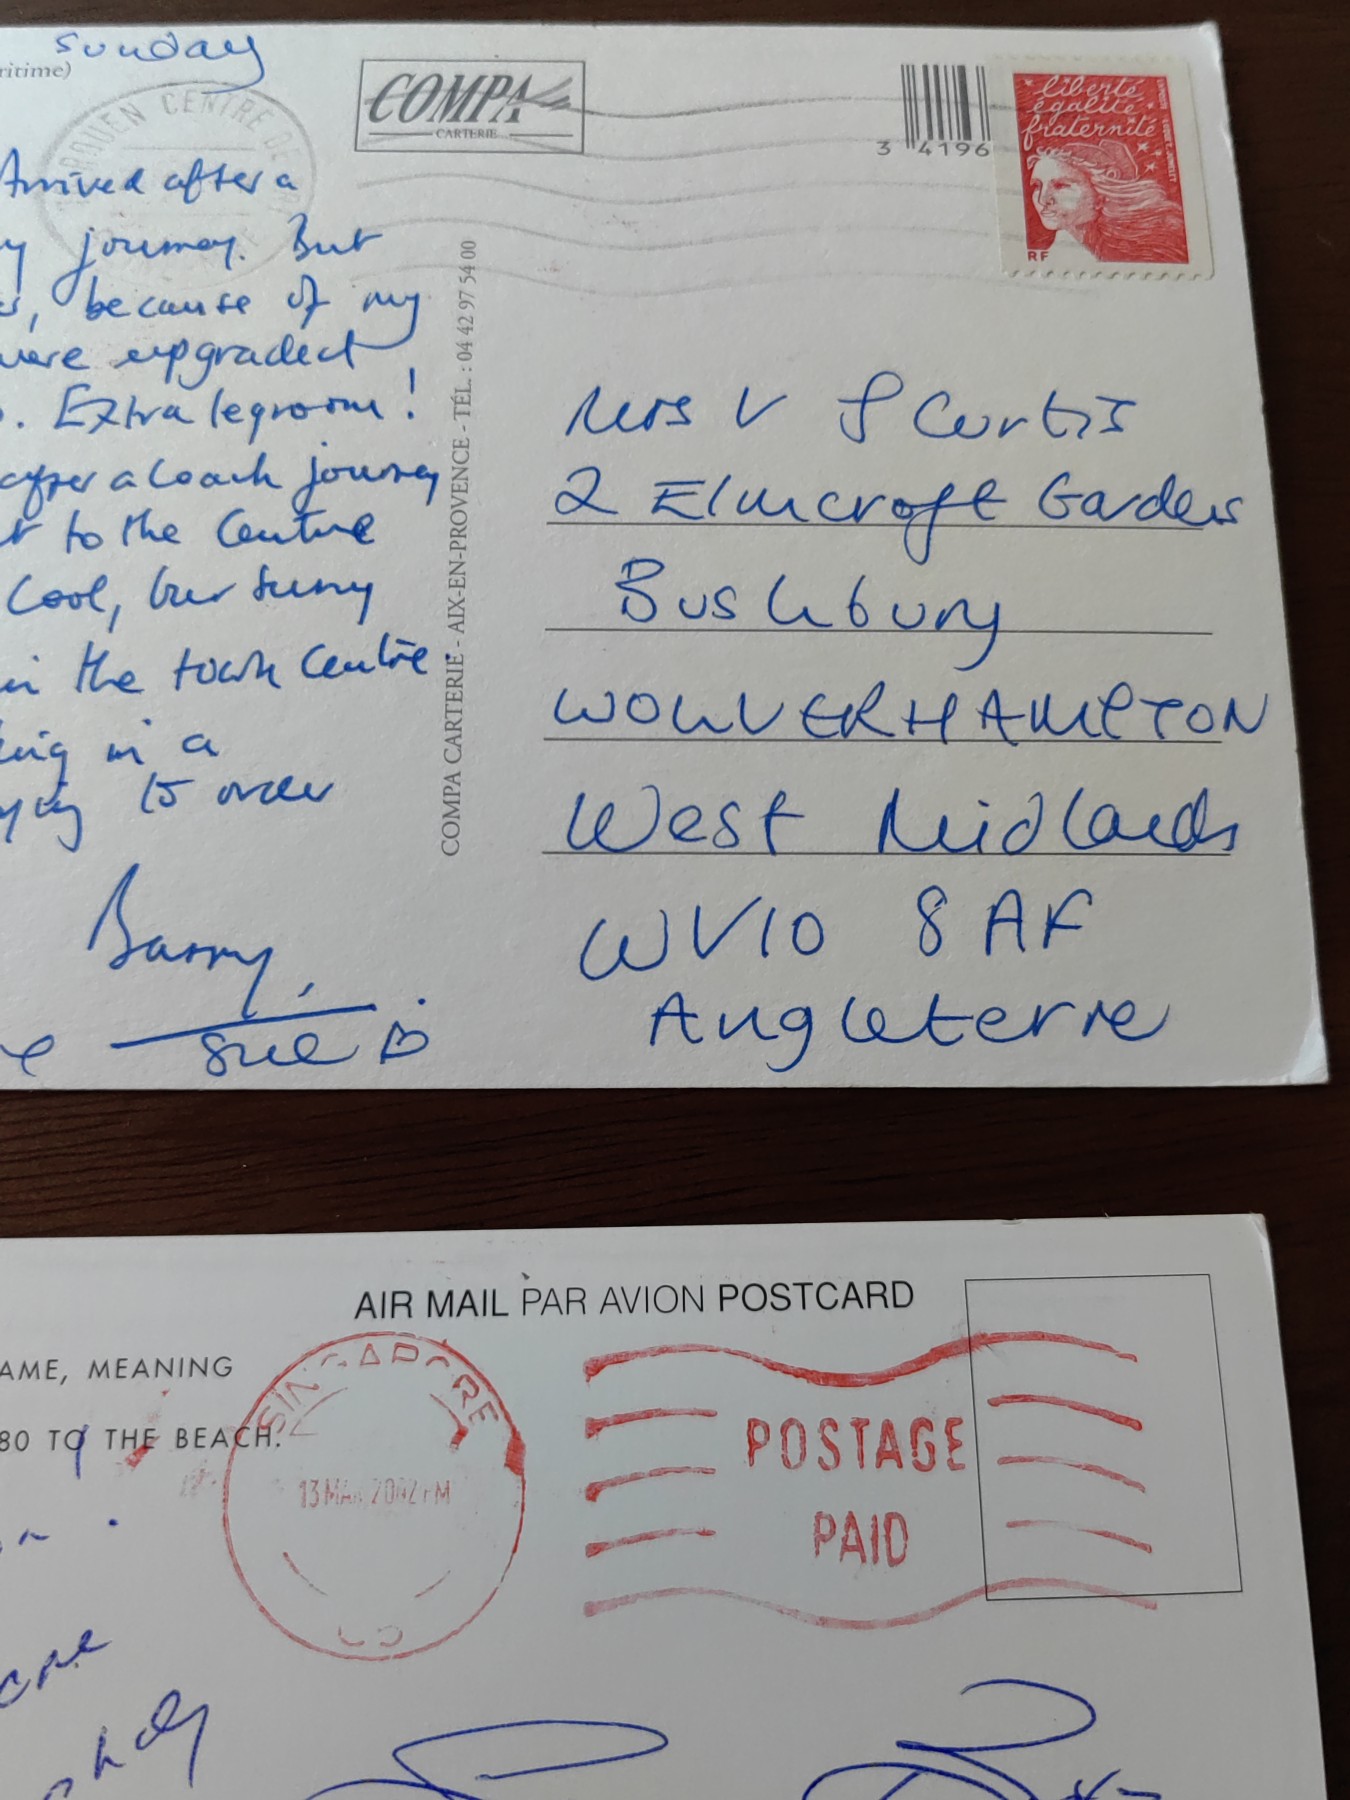 Sunday
ritime)
ROUEN CENTRE DE
COMPA
CARTERIE
3 4196
liberté
égalité
fraternité
RF
Arrived after a
y journey. But
, because of my
were upgraded
. Extra legroom!
after a coach journey
to the centre
Cool, but sunny
in the town centre.
king in a
ying to order
Barry,
Sue
COMPA CARTERIE - AIX-EN-PROVENCE - TÉL. : 04 42 97 54 00
Mrs V J Curtis
2 Elmcroft Gardens
Bushbury
WOLVERHAMPTON
West Midlands
WV10 8AF
Angleterre
AIR MAIL PAR AVION POSTCARD
AME, MEANING
80 TO THE BEACH.
SINGAPORE
13 MAR 2002 PM
POSTAGE
PAID